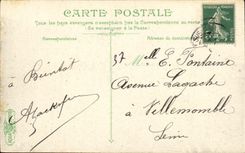 CARTE POSTALE
Tous les pays étrangers n'acceptent pas la Correspondance au recto
(Se renseigner à la Poste)
Correspondance
Adresse du destinataire
37 Melle E. Fontaine
Avenue Lagache
à Villemomble
Seine
à Bientôt